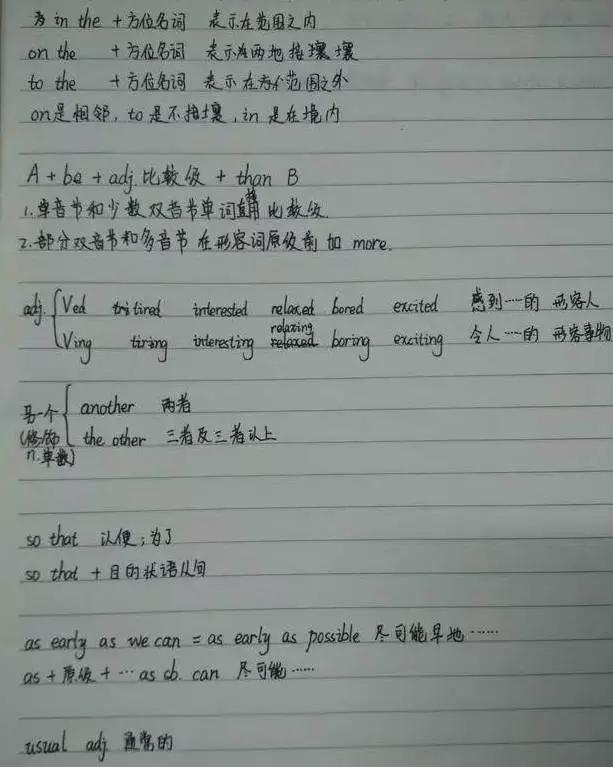 in the + 方位名词 表示在范围之内
on the + 方位名词 表示在两地接壤
to the + 方位名词 表示在范围之外
on是相邻, to 是不接壤, in 是在境内
A + be + adj. 比较级 + than B
1. 单音节和少数双音节单词直接用比较级.
2. 部分双音节和多音节 在形容词原级前 加 more.
adj. { Ved tired interested relaxed bored excited 感到……的 形容人
Ving tiring interesting relaxing boring exciting 令人……的 形容事物
另一个 { another 两者
(修饰 the other 三者及三者以上
n.单数)
so that 以便;为了
so that + 目的状语从句
as early as we can = as early as possible 尽可能早地……
as + 原级 + … as sb. can 尽可能……
usual adj 通常的